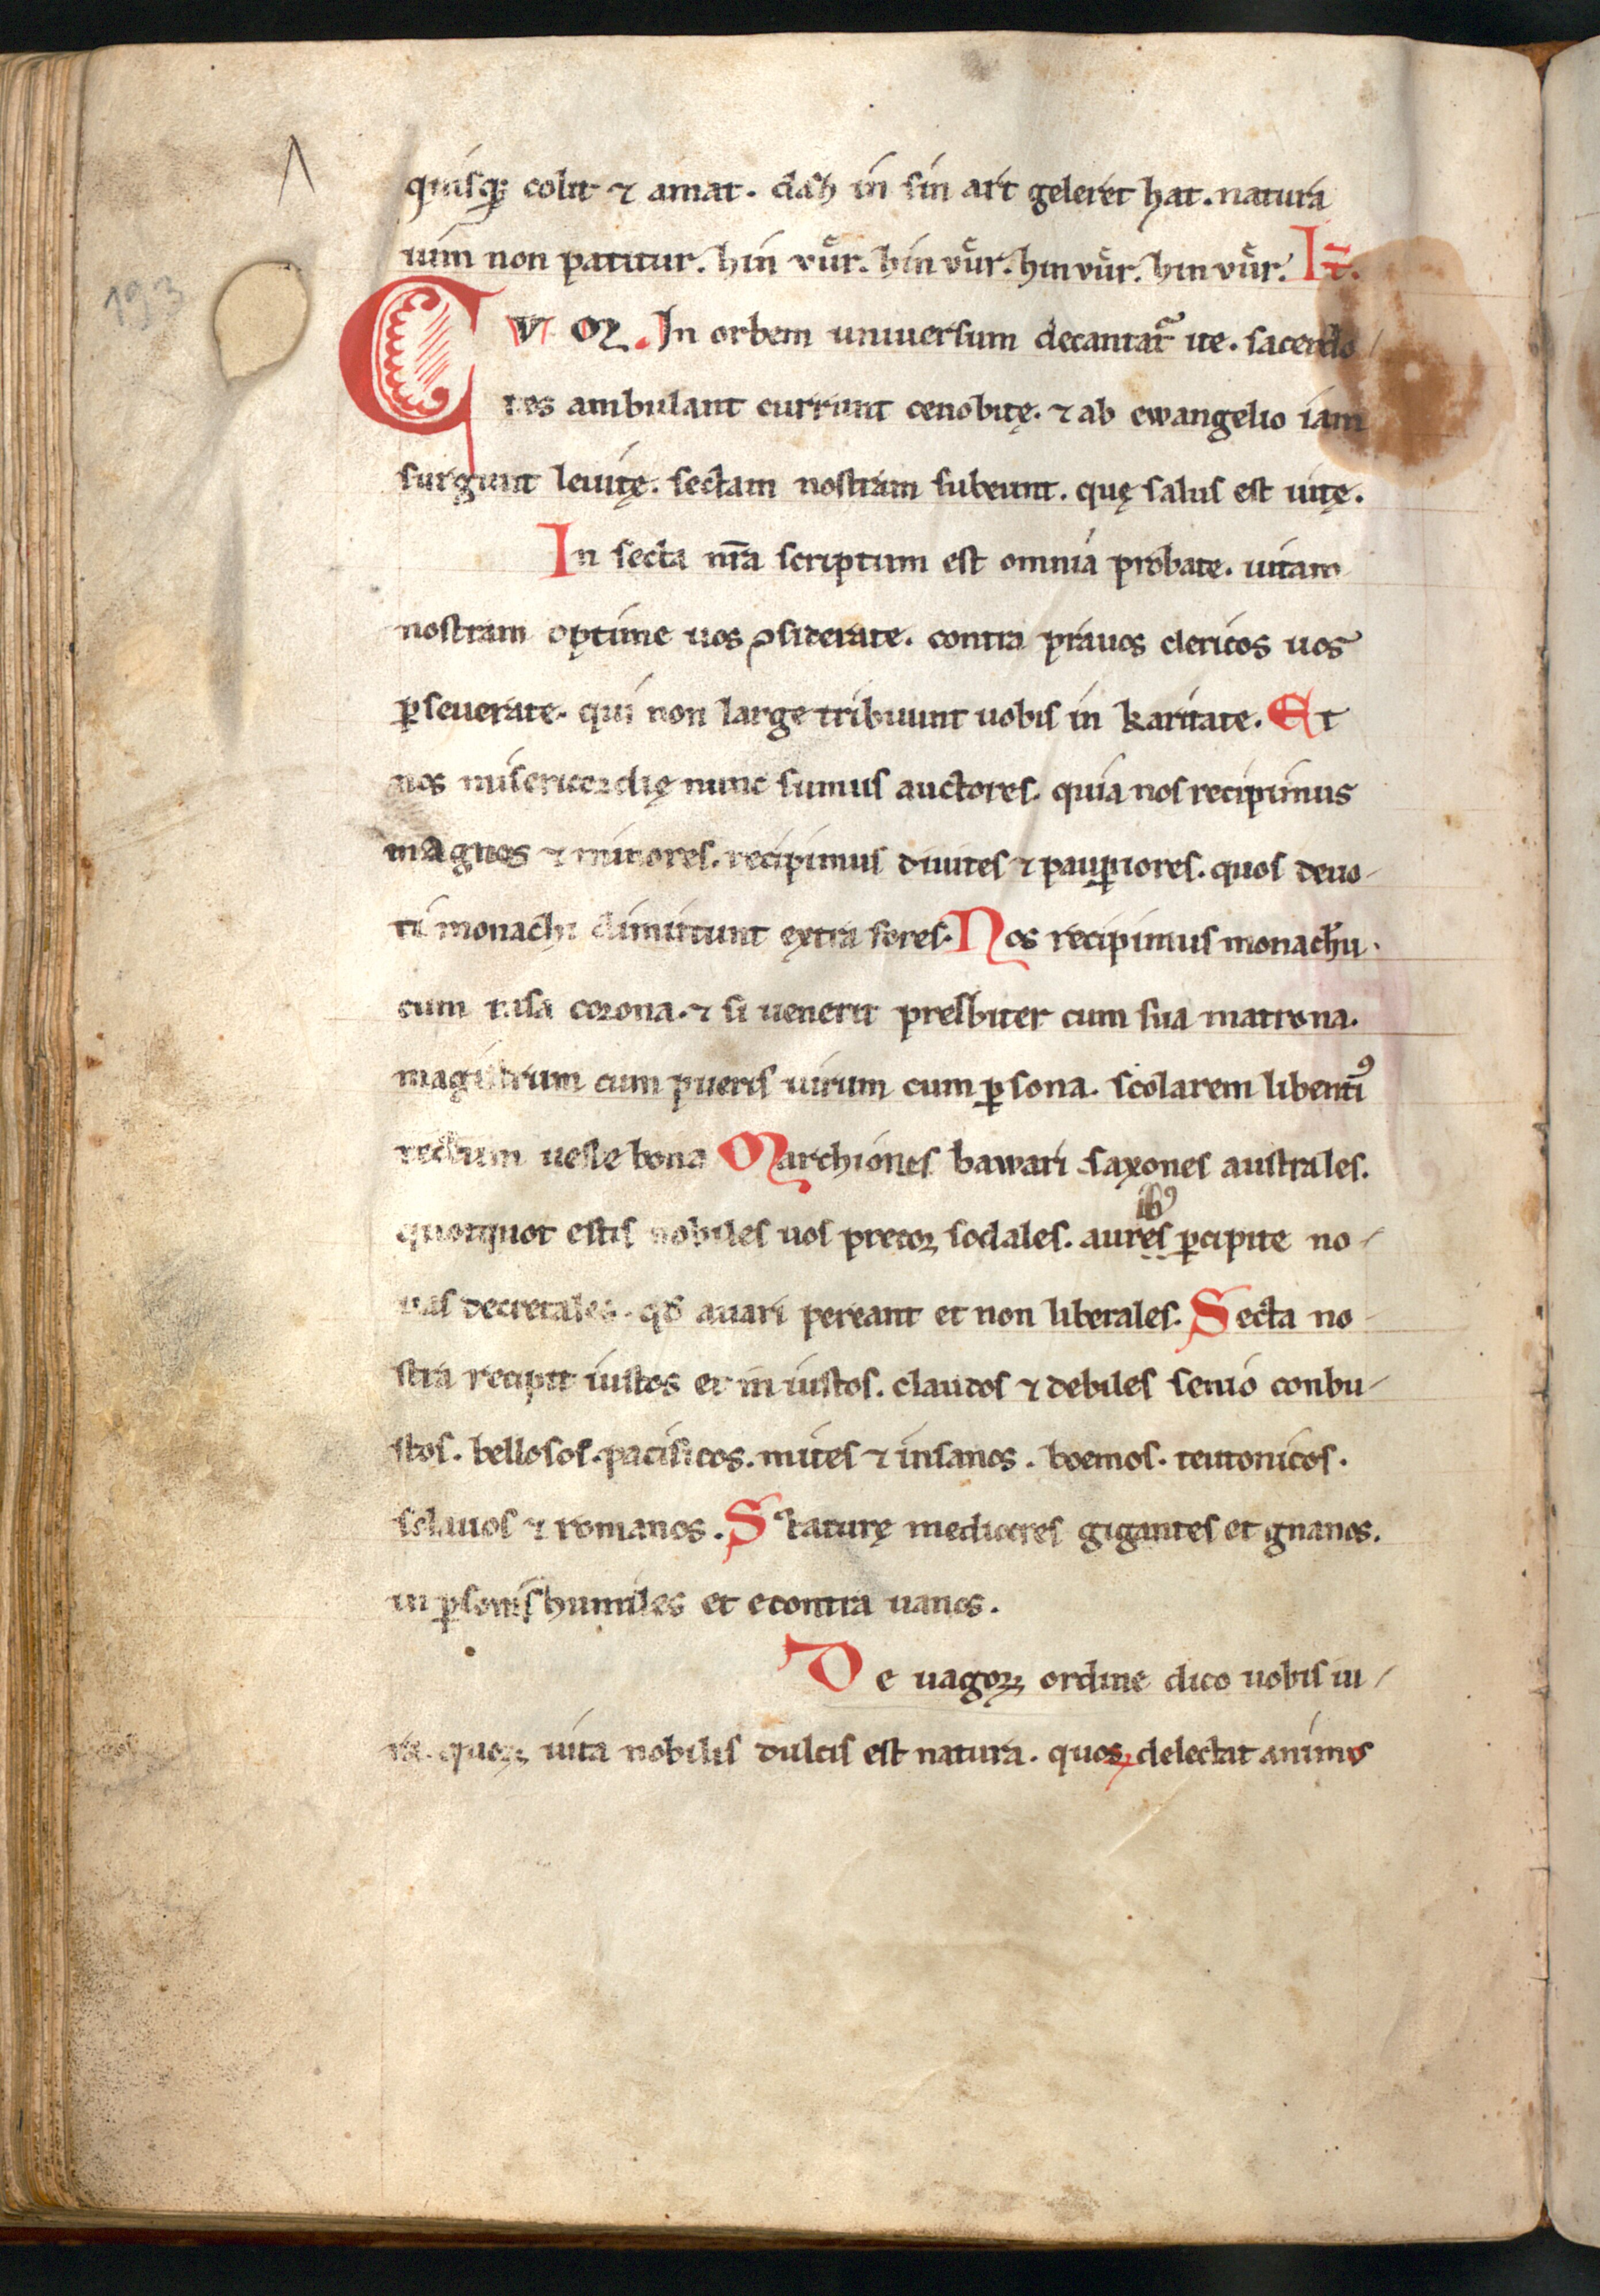 193
quisq; colit ⁊ amat. dah in sin art geleret hat. natura
uim non patitur. hin vuͤr. hin vuͤr. hin vuͤr. hin vuͤr. It̄.
CVM. In orbem uniuersum decantat᷑ ite. sacerdo-
tes ambulant currunt cenobitę. ⁊ ab ewangelio iam
surgunt leuitę. sectam nostram subeunt. quę salus est uitę.
In secta nr̄a scriptum est omnia probate. uitam
nostram optime uos ꝯsiderate. contra prauos clericos uos
ꝑseuerate. qui non large tribuunt uobis in karitate. Et
nos misericordię nunc sumus auctores. quia nos recipimus
magnos ⁊ minores. recipimus diuites ⁊ pauꝑiores. quos deuo-
ti monachi dimittunt extra fores. Nos recipimus monachū.
cum rasa corona. ⁊ si uenerit presbiter cum sua matrona.
magistrum cum pueris uirum cum ꝑsona. scolarem libentiꝰ
tectum ueste bona Marchiones bawari saxones australes.
quotquot estis nobiles uos precoꝝ sodales. aures ibꝰ ꝑcipite no-
uas decretales. qd̄ auari pereant et non liberales. Secta no-
stra recipit iustos et iniustos. claudos ⁊ debiles senio conbu-
stos. bellosos. pacificos. mites ⁊ insanos. boemos. teutonicos.
sclauos ⁊ romanos. Staturę mediocres gigantes et gnanos.
in ꝑsonis humiles et econtra uanos.
De uagoꝝ ordine dico uobis iu-
ra. quoꝝ uita nobilis dulcis est natura. quos delectat animus